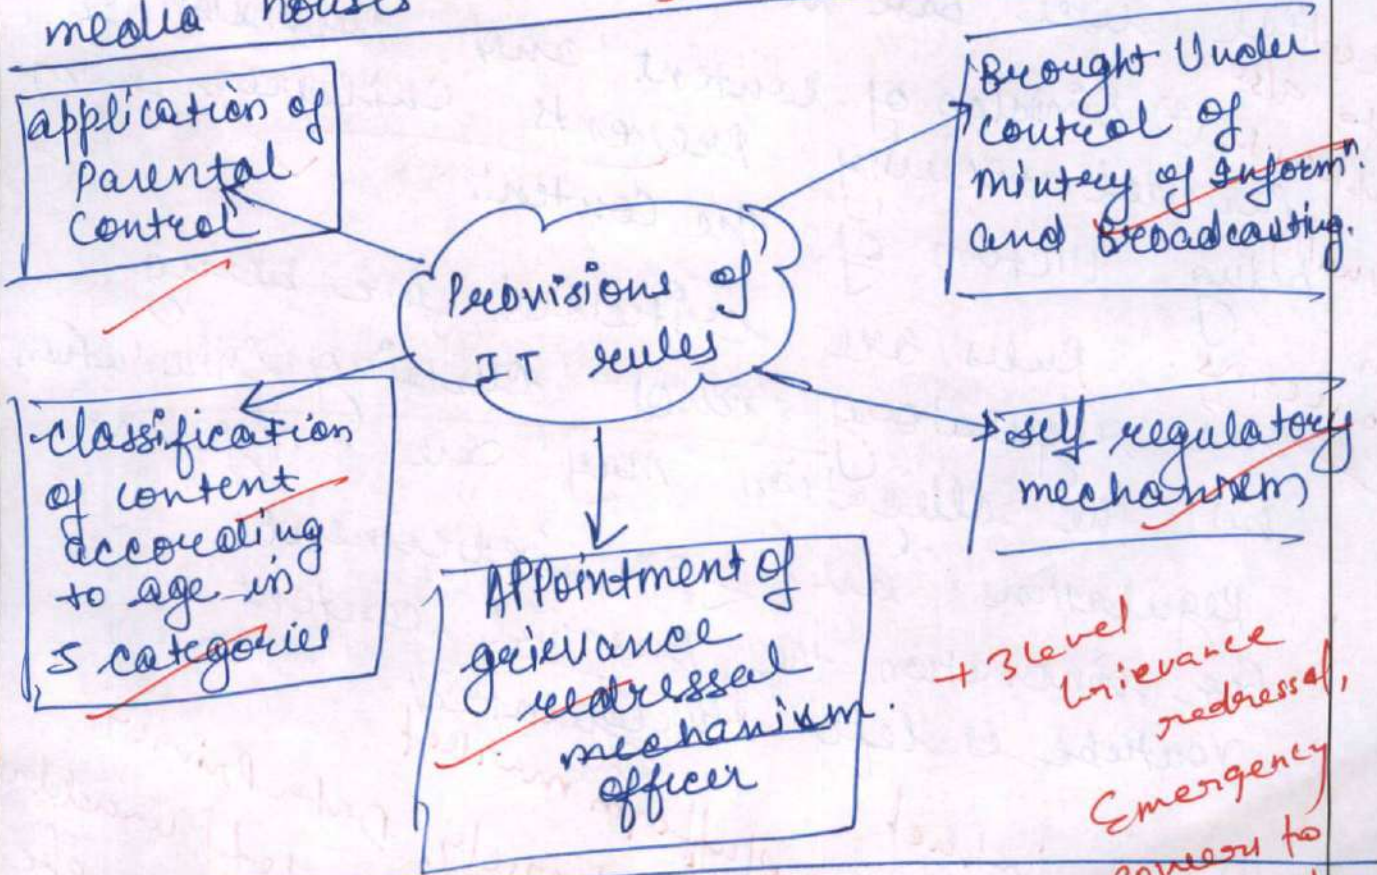 media houses
application of
Parental
Control
Brought Under
control of
mintry of Informⁿ.
and Broadcasting.
Provisions of
IT rules
Classification
of content
according
to age in
5 categories
self regulatory
mechanism
Appointment of
grievance
redressal
mechanism.
officer
+ 3 level
Grievance
redressal,
Emergency
to